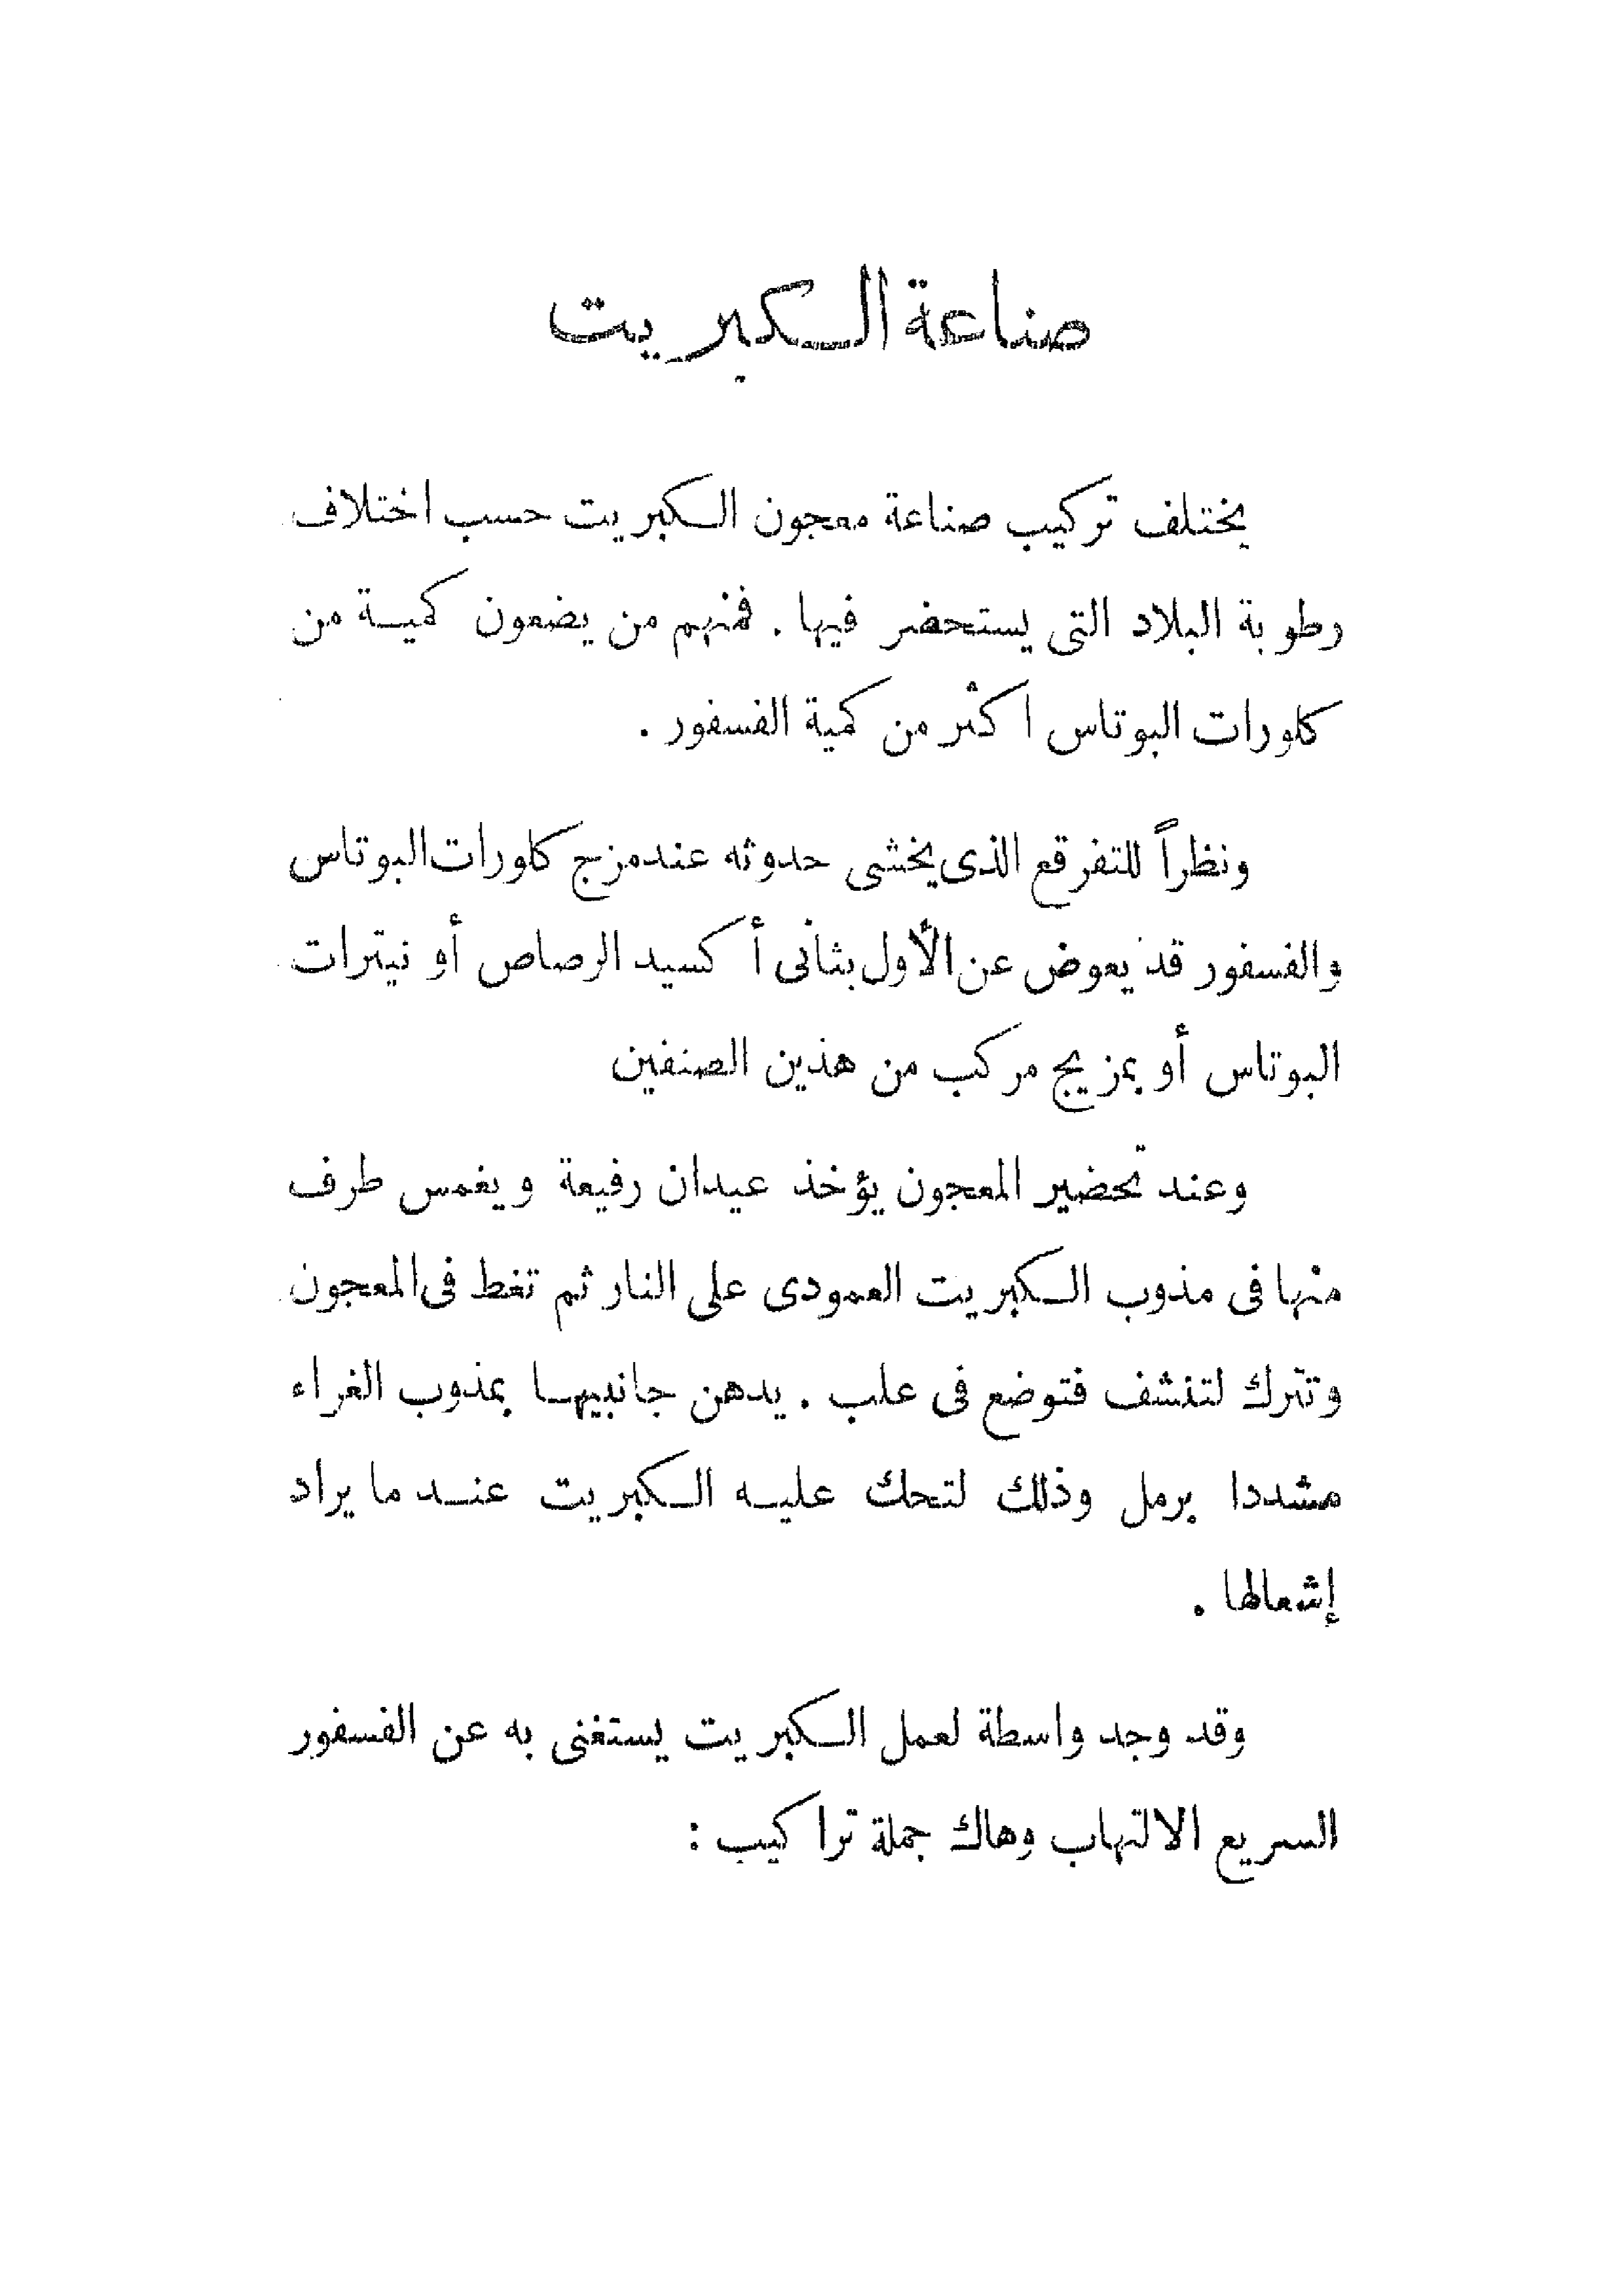 صناعة الكبريت
يختلف تركيب صناعة معجون الكبريت حسب اختلاف
رطوبة البلاد التى يستحضر فيها . فمنهم من يضعون كمية من
كلورات البوتاس اكثر من كمية الفسفور .
ونظراً للتفرقع الذى يخشى حدوثه عند مزج كلورات البوتاس
والفسفور قد يعوض عن الأول بثانى أكسيد الرصاص أو نيترات
البوتاس أو بمزيج مركب من هذين الصنفين
وعند تحضير المعجون يؤخذ عيدان رفيعة ويغمس طرف
منها فى مذوب الكبريت العمودى على النار ثم تغط فى المعجون
وتترك لتنشف فتوضع فى علب . يدهن جانبيها بمذوب الغراء
مشددا برمل وذلك لتحك عليه الكبريت عند ما يراد
إشعالها .
وقد وجد واسطة لعمل الكبريت يستغنى به عن الفسفور
السريع الالتهاب وهاك جملة تراكيب :